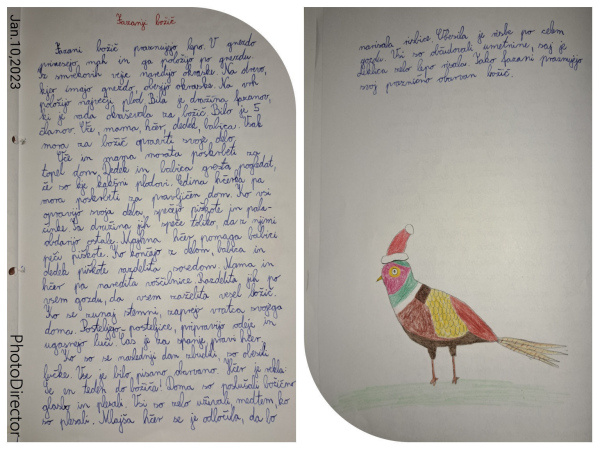 Fazanji božič
Fazani božič praznujejo lepo. V gnezdo
prinesejo mah in ga položijo po gnezdu.
Iz smrekovih vejc naredijo okraske. Na drevo,
kjer imajo gnezdo, obesijo okraske. Na vrh
položijo največji plod. Bila je družina fazanov,
ki je rada okraševala za božič. Bilo je 5
članov. Oče, mama, hčer, dedek, babica. Vsak
mora za božič opraviti svoje delo.
Oče in mama morata poskrbeti za
topel dom. Dedek in babica gresta pogledat,
če so še kakšni plodovi. Edina hčerka pa
mora poskrbeti za pravljičen dom. Ko vsi
opravijo svoja dela, spečejo piškote in pala-
činke. Ta družina jih speče toliko, da z njimi
obdarijo ostale. Majhna hčer pomaga babici
peči piškote. Ko končajo z delom, babica in
dedek piškote razdelita sosedom. Mama in
hčer pa naredita voščilnice. Razdelita jih po
vsem gozdu, da vsem zaželita vesel božič.
Ko se zunaj stemni, zaprejo vratca svojega
doma. Posteljejo posteljice, pripravijo odeje in
ugasnejo luči. Čas je za spanje, pravi hčer.
Ko so se naslednji dan zbudili, so obesili
lučke. Vse je bilo pisano, barvano. Hčer je rekla:
Še en teden do božiča! Doma so poslušali božično
glasbo in plesali. Vsi so zelo uživali, medtem, ko
so plesali. Mlajša hčer se je odločila, da bo
narisala risbice. Obesila je risbe po celem
gozdu. Vsi so občudovali umetnine, saj je
deklica zelo lepo risala. Tako fazani praznujejo
svoj praznično obarvan božič.
Jan.10,2023
PhotoDirector